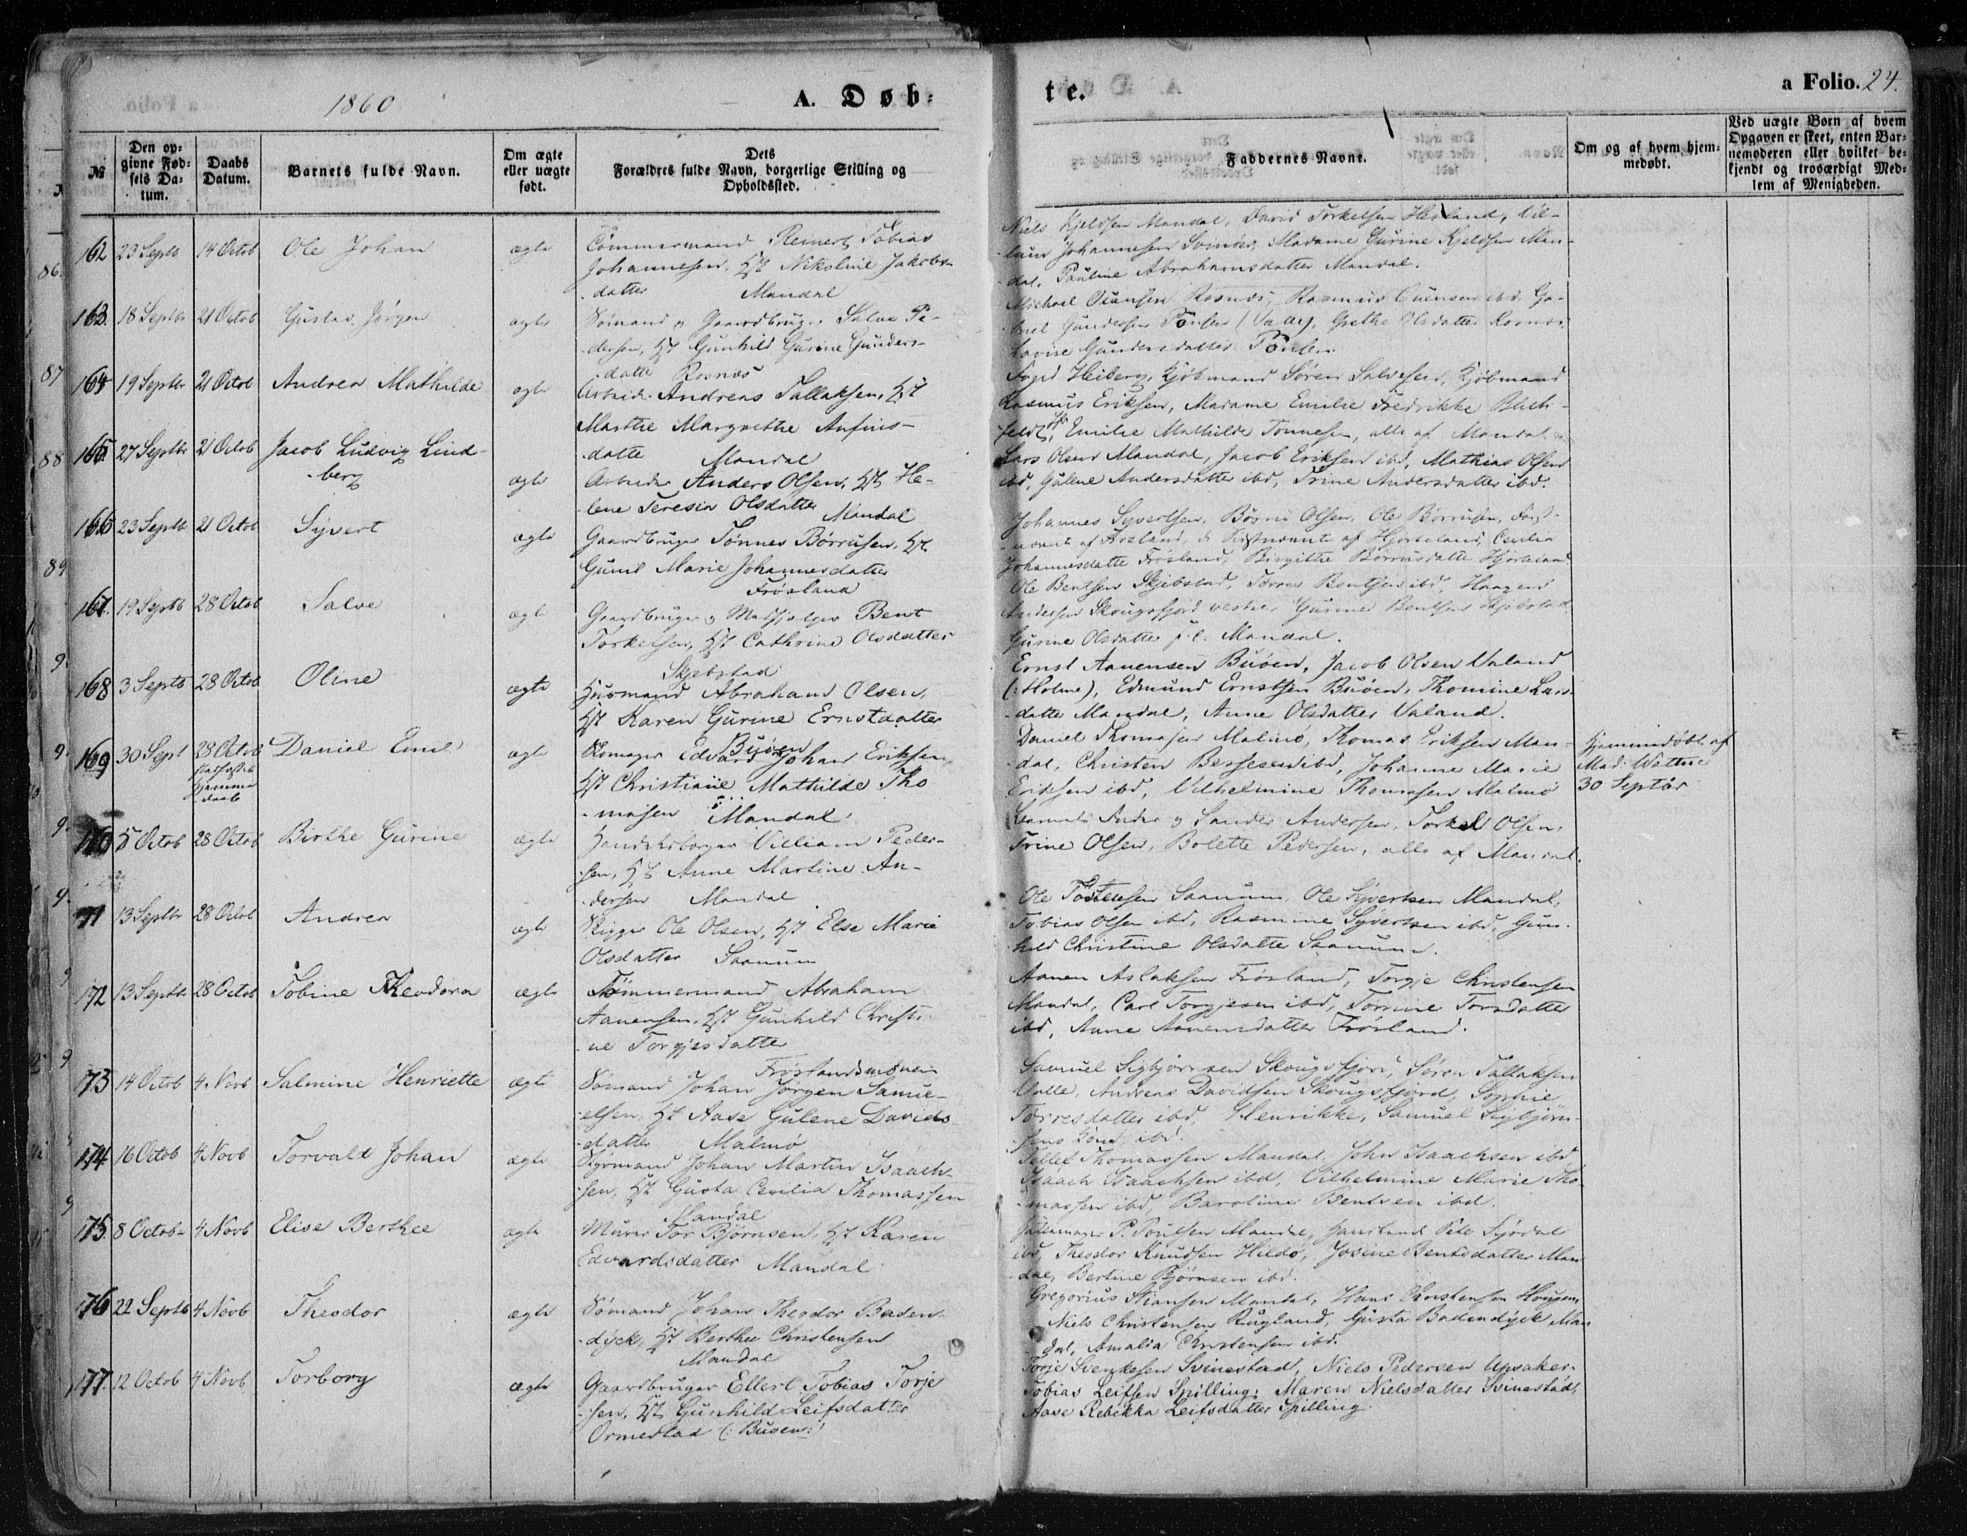 1860
A. Døb-
te.
a Folio. 24.
№
Den op-
givne Fød-
sels Da-
tum.
Daabs
Datum.
Barnets fulde Navn.
Om ægte
eller uægte
født.
Dets
Forældres fulde Navn, borgerlige Stilling og
Opholdssted.
Faddernes Navne.
Om og af hvem hjem-
medøbt.
Ved uægte Børn af hvem
Opgaven er skeet, enten Bar-
nemoderen eller hvilket be-
kjendt og troværdigt Med-
lem af Menigheden.
162 23 Septb 14 Octob Ole Johan ægte Tømmermand Reinert Tobias
Johannesen, Hst Nikoline Jakobs-
datter Mandal
Niels Kjeldsen Mandal, David Torkelsen Hesland, Vil-
lum Johannesen Svinør, Madame Gurine Kjeldsen Man-
dal, Pauline Abrahamsdatter Mandal.
163. 18 Septbr 21 Octob Gustav Jørgen ægte Sømand og Gaardbruger Salve Pe-
dersen, Hst Gunhild Gurine Gunders-
datte Rosnæs
Michael Osensen Rosnæs, Rasmus Osensen ibd, Ga-
briel Gundersen Poulen (Valle), Grethe Olsdatter Rosnæs,
Lovise Gundersdatter
164 19 Septbr 21 Octob Andrea Mathilde ægte Arbeid. Andreas Tallaksen, Hst
Marthe Margrethe Anfins-
datte Mandal
Foged Heiberg, Kjøbmand Søren Salvesen, Kjøbmand
Rasmus Eriksen, Madame Emilie Fredrikke Bluch-
feldt, Emilie Mathilde Tønnesen, alle af Mandal
165 27 Septbr 21 Octob Jacob Ludvig Lind-
berg ægte Arbeider Anders Olsen, Hst He-
lene Teresia Olsdatter Mandal
Lars Olsen Mandal, Jacob Eriksen ibd, Mathias Olsen
ibd, Gulene Andersdatter ibd, Trine Andersdatter ibd.
166 23 Septb 21 Octob Syvert ægte Gaardbruger Tønnes Børrusen, Hst
Gunil Marie Johannesdatter
Frøsland
Johannes Syvertsen, Børru Olsen, Ole Børrusen, Først-
nævnte af Frøsland, de Sidstnævnte af Hjorteland, Cecilia
Johannesdatte Frøsland, Birgitte Børrusdatte Hjorteland
167. 19 Septb 28 Octob Salve ægte Gaardbruger og Medhjælper Bent
Torkelsen, Hst Cathrine Olsdatter
Skjebstad
Ole Bentsen Skjebstad, Torres Bentsen ibd, Haagen
Andersen Skougsfjord vestre, Gurine Bentsen Skjebstad
Gurine Olsdatter p.t. Mandal.
168 3 Septb 28 Octob Oline ægte Husmand Abraham Olsen,
Hst Karen Gurine Ernstdatter
Buøen
Ernst Aanensen Buøen, Jacob Olsen Valand
(:Holme), Edmund Ernstsen Buøen, Thomine Lars-
datte Mandal, Anne Olsdatter Valand.
169 30 Sept 28 Octob
Hjemme
daab
Daniel Emil ægte Skomager Edvard Johan Eriksen
Hst Christiane Mathilde Tho-
masen Mandal
Daniel Thomasen Malmø, Thomas Eriksen Man-
dal, Christen Bergesen ibd, Johanne Marie
Eriksen ibd, Vilhelmine Thomasen Malmø
Hjemmedøbt af
Mad: Wattne
30 Septbr
170 5 Octob 28 Octob Birthe Gurine ægte Handskeborger Villiam Peder-
sen, Hst Anne Martine An-
dersen Mandal
Garver Peder og Sander Andersen, Torkel Olsen,
Trine Olsen, Bolette Pedersen, alle af Mandal.
171 13 Septbr 28 Octob Andrea ægte Rigger Ole Olsen, Hst Else Marie
Olsdatter Saanum
Ole Tostensen Saanum, Ole Syvertsen Mandal,
Tobias Olsen ibd, Rasmine Syvertsen ibd, Gun-
hild Christine Olsdatte Saanum.
172 13 Septbr 28 Octob Tobine Theodora ægte Tømmermand Abraham
Aanensen, Hst Gunhild Christi-
ne Torgjesdatter
Frøslandsmonen
Aanen Aslaksen Frøsland, Torgje Christensen
Mandal, Carl Torgjesen ibd, Tomine Torsdatter
ibd, Anne Aanensdatter Frøsland.
173 14 Octob 4 Novb Salmine Henriette ægte Sømand Johan Jørgen Samu-
elsen, Hst Aase Gulene Davids-
datter Malmø
Samuel Sigbjørnsen Skougsfjord, Søren Tallaksen
Valle, Andreas Davidsen Skougsfjord, Sophie
Torresdatter ibd, Henrikke, Samuel Sigbjørn-
sens Kone ibd.
174 16 Octob 4 Novb Torvald Johan ægte Styrmand Johan Martin Isaach-
sen, Hst Gusta Cecilia Thomassen
Mandal
Tellef Thomassen Mandal, John Isaachsen ibd
Isaach Isaachsen ibd, Vilhelmine Marie Tho-
massen ibd, Baroline Bentsen ibd.
175. 8 Octobr 4 Novb Elise Berthee ægte Murer Tor Bjørnsen, Hst Karen
Edvardsdatter Mandal
P. Poulsen Mandal, Peter Sjødal
ibd, Theodor Knudsen Hildø, Josine Bentsdatter Man-
dal, Bertine Bjørnsen ibd.
176 22 Septb 4 Novb Theodor ægte Sømand Johan Theodor Baden-
dyck, Hst Berthee Christensen
Mandal
Gregorius Stiansen Mandal, Hans Christensen Hougen
Niels Christensen Rugland, Gusta Badendyck Man-
dal, Amalia Christensen ibd.
177. 12 Octob 4 Novb Torborg ægte Gaardbruger Ellert Tobias Torje-
sen, Hst Gunhild Leifsdatter
Ormestad (: Busen:)
Torje Svenkesen Svinestad, Niels Pedersen Upsaker
Tobias Leifsen Spilling, Maren Nielsdatter Svinestad,
Aase Rebikka Leifsdatter Spilling.